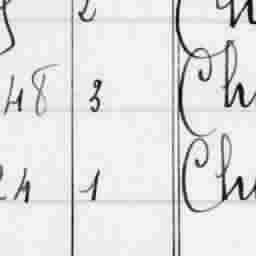 2
48 3 Ch
24 1 Ch